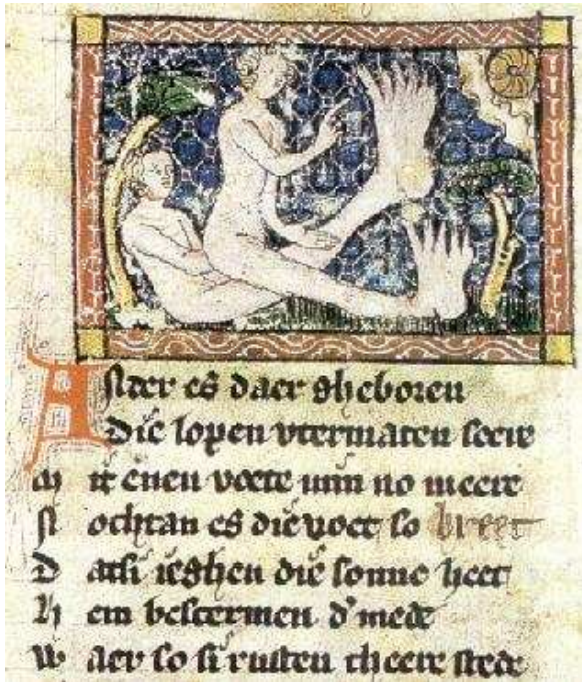 Aster es daer gheboren
Die lopen vtermaten seere
M it enen voete min no meere
N ochtan es die voet so breet
D atsi ieghen die sonne heet
H em bescermen d' mede
W aer so si rusten theere stede